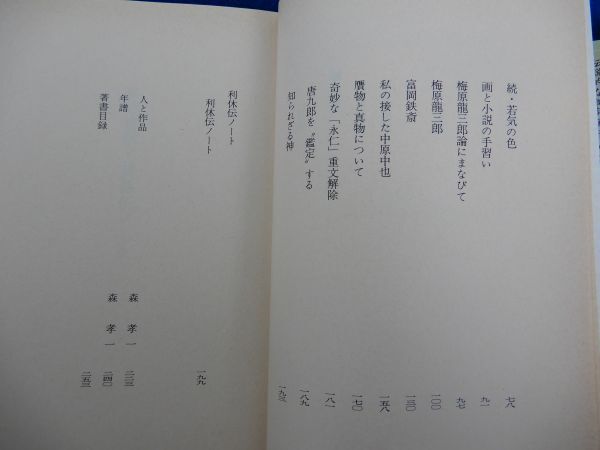 続・若気の色 七八
画と小説の手習い 九一
梅原龍三郎論にまなびて 九七
梅原龍三郎 一〇〇
富岡鉄斎 一三〇
私の接した中原中也 一五八
贋物と真物について 一七〇
奇妙な「永仁」重文解除 一八一
唐九郎を〝鑑定〟する 一八九
知られざる神 一九三
利休伝ノート
利休伝ノート 一九九
人と作品 森 孝一 二三三
年譜 森 孝一 二四〇
著書目録 二五三